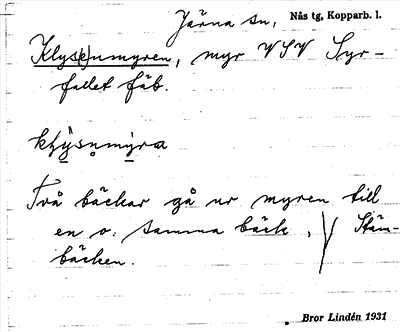 Järna sn, Nås tg, Kopparb. l.
Klys(k)numyren, myr VSV Syr-
fallet fäb.
kḷysnumy̱ra
Två bäckar gå ur myren till
en o. samma bäck, Stäm-
bäcken.
Bror Lindén 1931